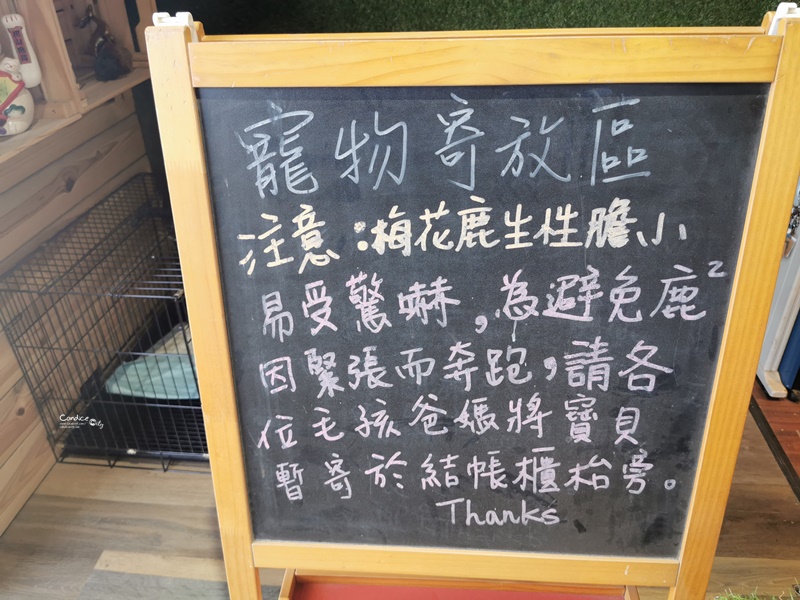 寵物寄放區
注意:梅花鹿生性膽小
易受驚嚇,為避免鹿²
因緊張而奔跑,請各
位毛孩爸媽將寶貝
暫寄於結帳櫃枱旁。
Thanks
Candice